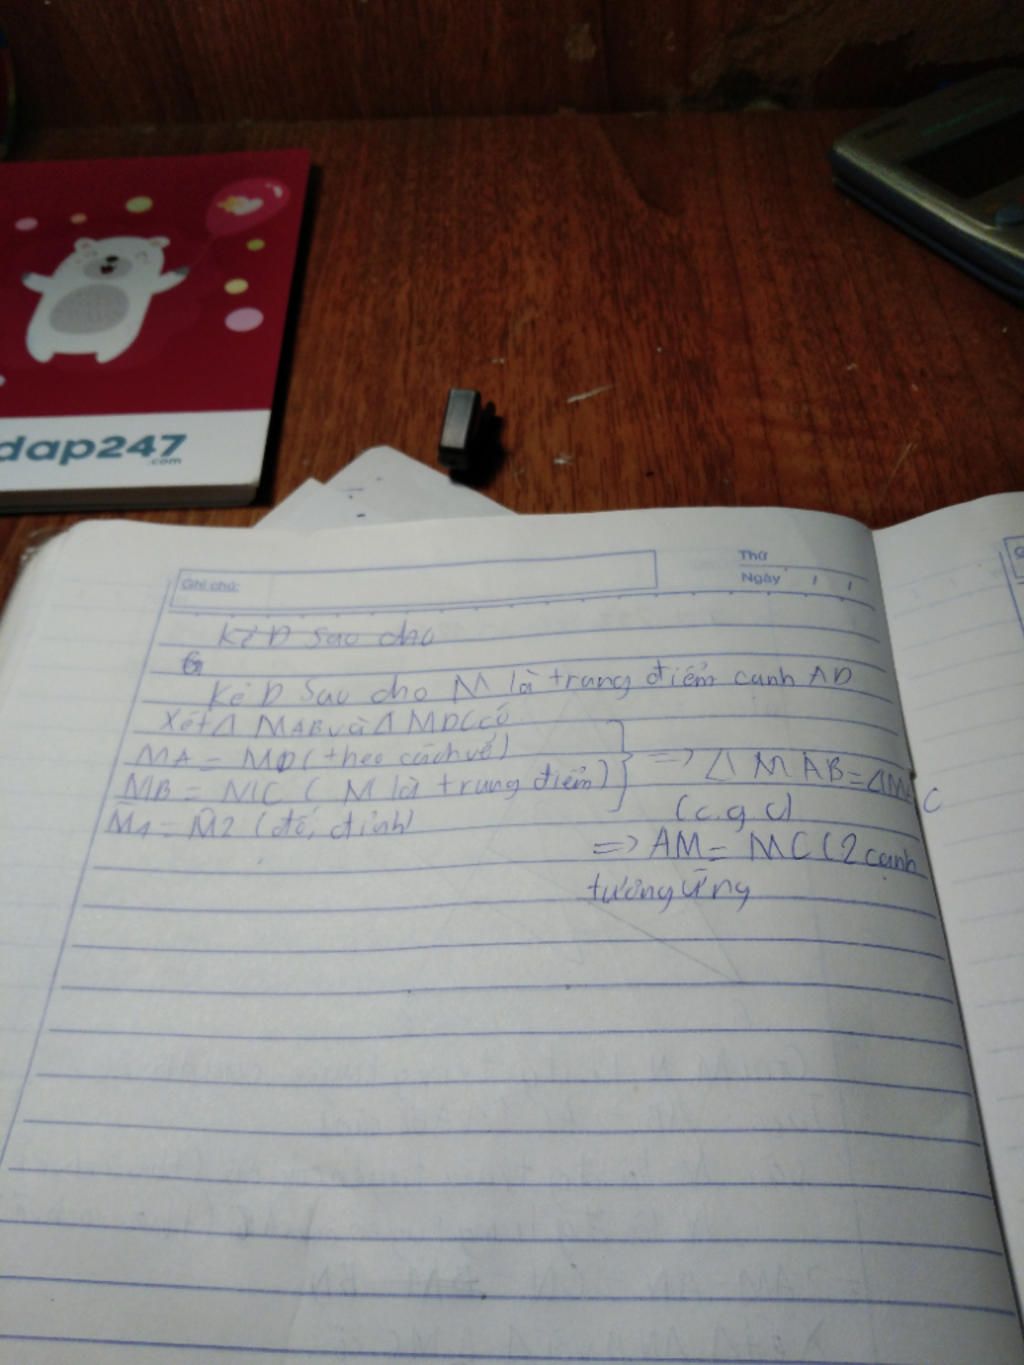 dap247
.com
Ghi chú:
Thứ
Ngày / /
Kẻ D sao cho
G
Kẻ D sao cho M là trung điểm cạnh AD
Xét Δ MAB và Δ MDC có
MA = MD (theo cách vẽ)
MB = MC ( M là trung điểm)
M1 = M2 (đối đỉnh)
=> Δ MAB = ΔM C
(c.g.c)
=> AM = MC (2 cạnh
tương ứng